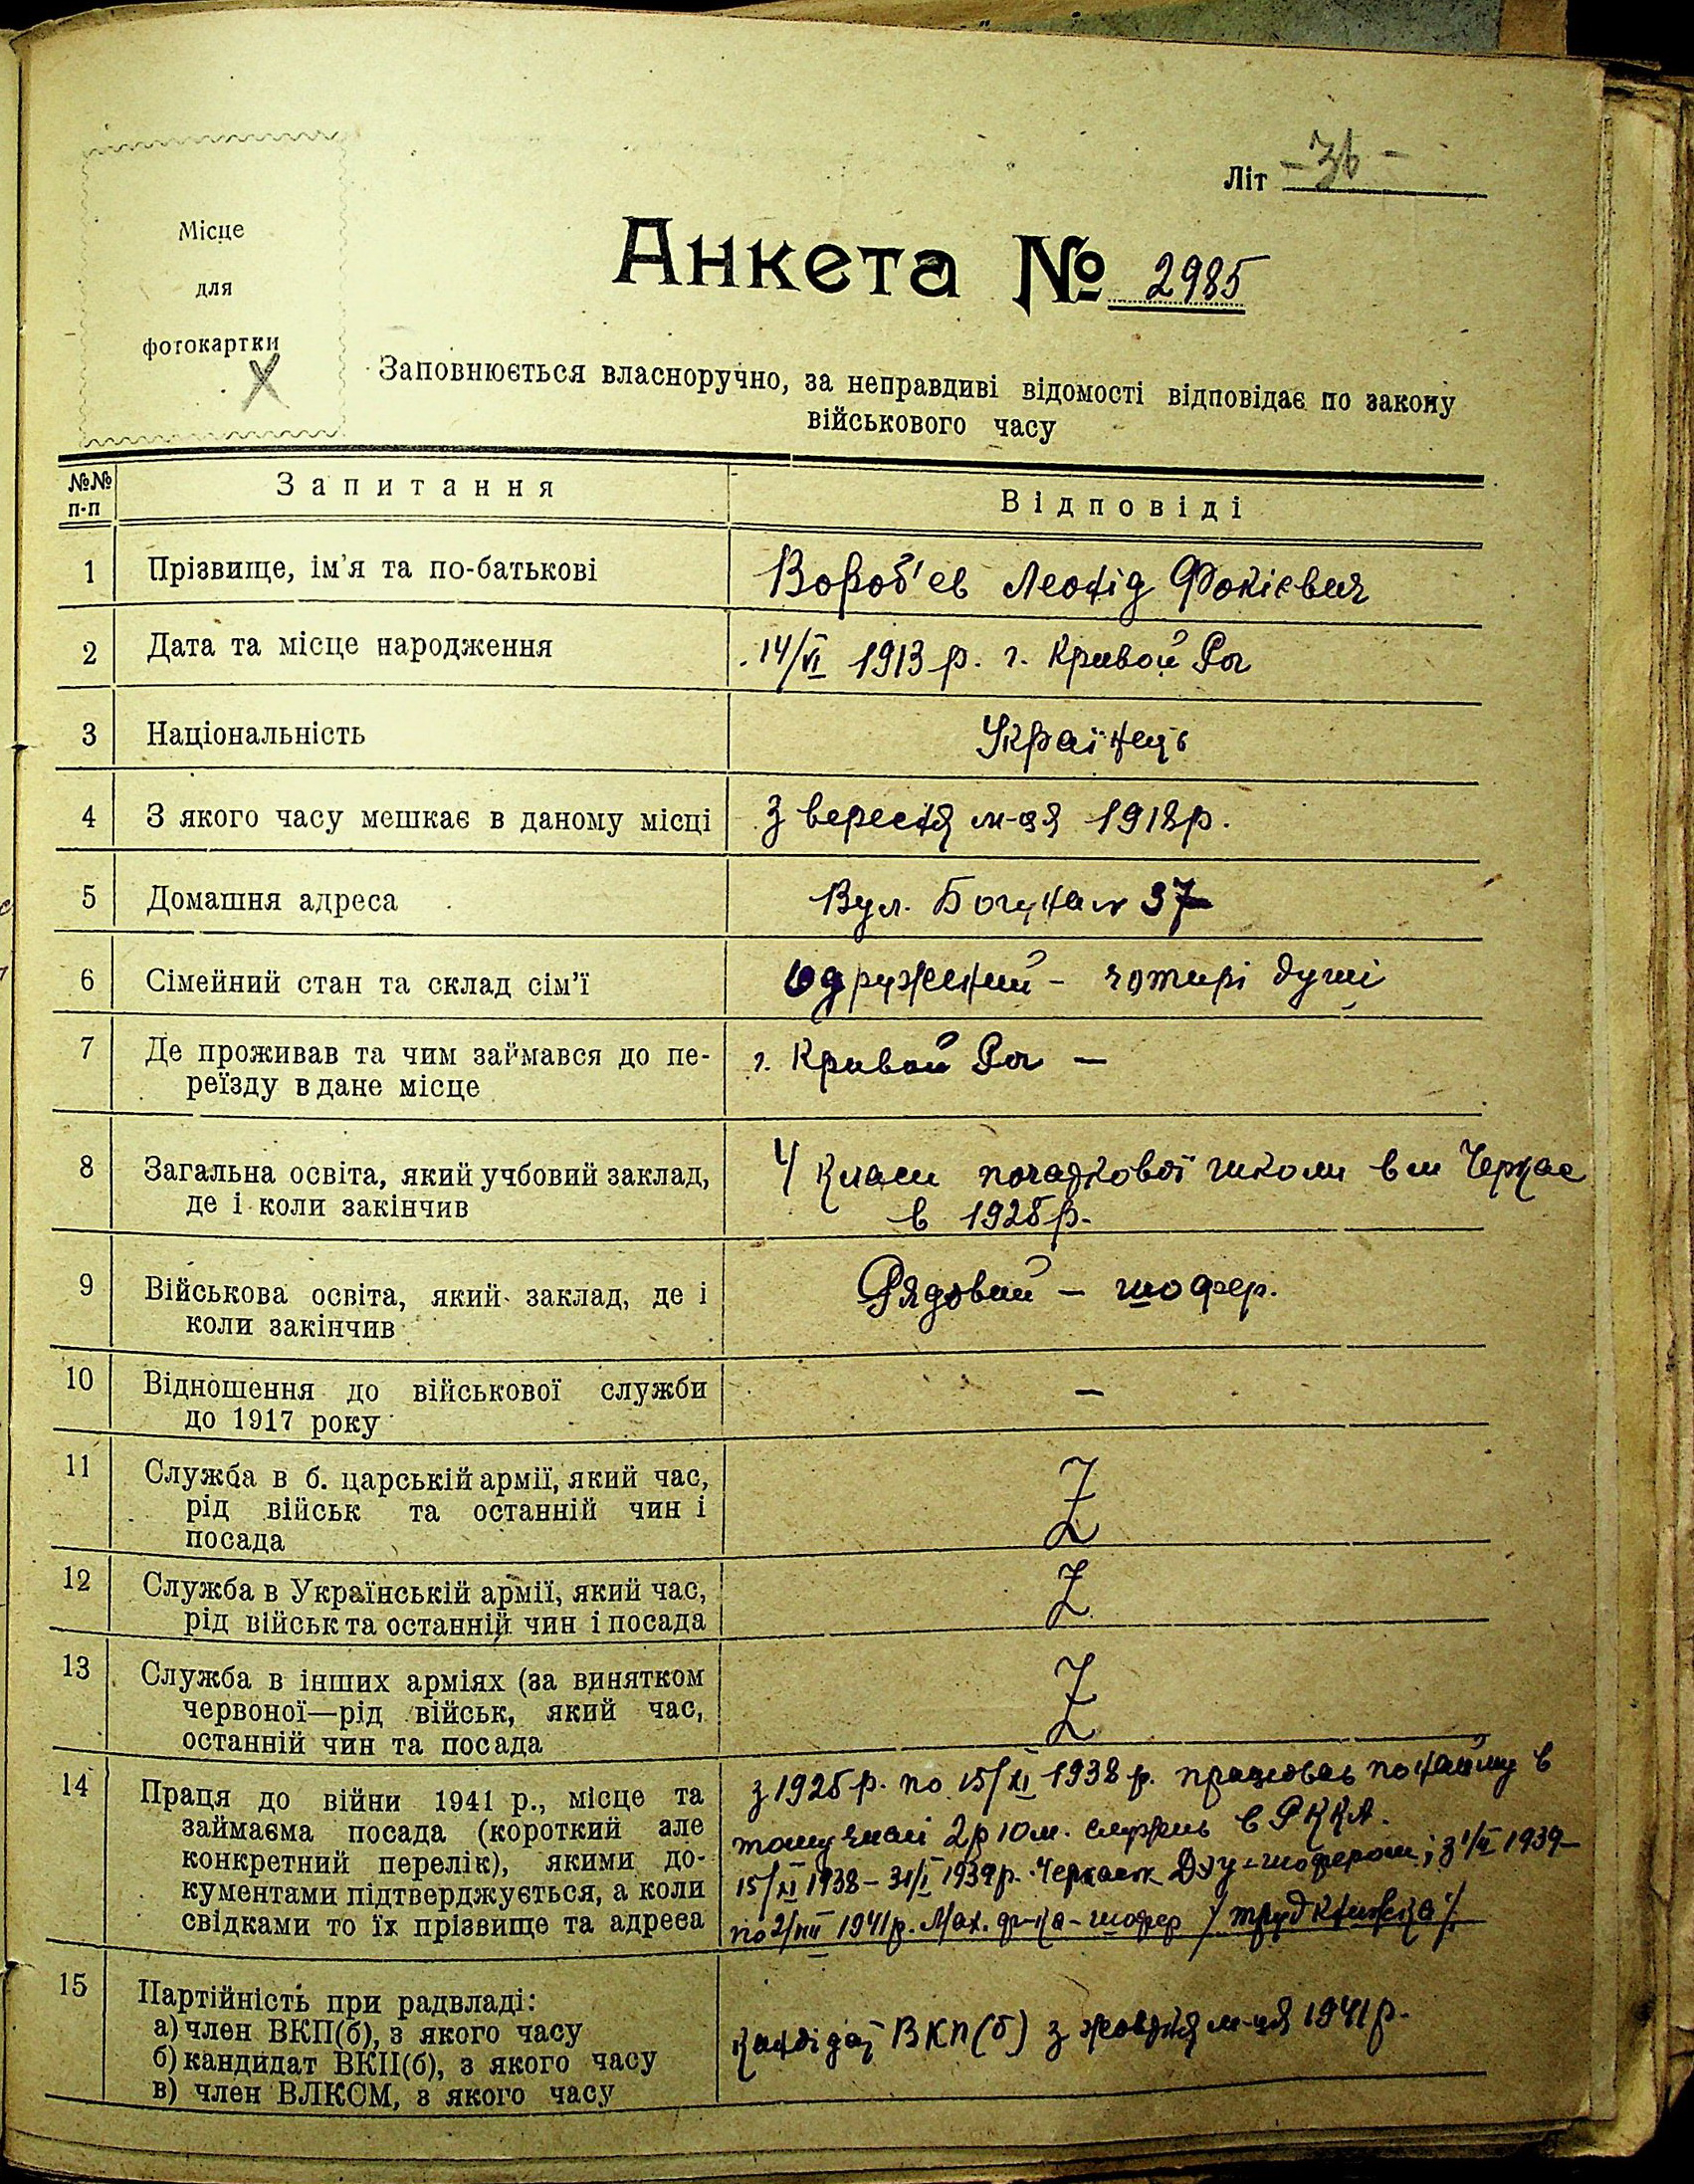 Літ - 36 -
Місце
для
фотокартки
Анкета № 2985
Заповнюється власноручно, за неправдиві відомості відповідає по закону
військового часу
№№ п-п
Запитання
Відповіді
1 Прізвище, ім'я та по-батькові
Вороб'ев Леонід Фокієвич
2 Дата та місце народження
14/VI 1913 р. г. Кривой Рог
3 Національність
Українець
4 З якого часу мешкає в даному місці
З вересня м-ця 1918 р.
5 Домашня адреса
Вул. Богуна № 37
6 Сімейний стан та склад сім'ї
Одружений - чотирі душі
7 Де проживав та чим займався до пе-
реїзду в дане місце
г. Кривой Рог —
8 Загальна освіта, який учбовий заклад,
де і коли закінчив
4 класи початкової школи в м Черкас
в 1925 р.
9 Військова освіта, який заклад, де і
коли закінчив
Рядовий - шофер.
10 Відношення до військової служби
до 1917 року
—
11 Служба в б. царській армії, який час,
рід військ та останній чин і
посада
Z
12 Служба в Українській армії, який час,
рід військ та останній чин і посада
Z
13 Служба в інших арміях (за винятком
червоної—рід військ, який час,
останній чин та посада
Z
14 Праця до війни 1941 р., місце та
займаєма посада (короткий але
конкретний перелік), якими до-
кументами підтверджується, а коли
свідками то їх прізвище та адреса
з 1925 р. по 15/XI 1938 р. працював по найму в
тому числі 2 р 10 м. служив в РККА.
15/XI 1938 - 31/I 1939 р. Черкаськ ДЭУ - шофером; з 1/II 1939 -
по 2/VIII 1941 р. Мах. ф-ка - шофер / труд книжка /.
15 Партійність при радвладі:
а) член ВКП(б), з якого часу
б) кандидат ВКП(б), з якого часу
в) член ВЛКСМ, з якого часу
Кандідат ВКП(б) з жовтня м-ця 1941 р.